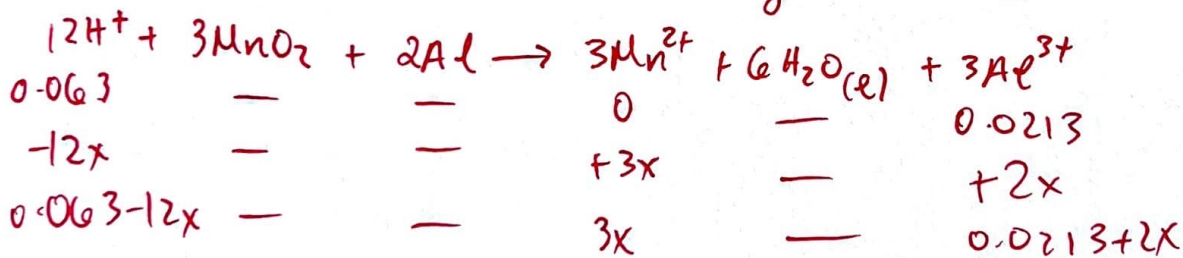 12H⁺ + 3MnO₂ + 2Al → 3Mn²⁺ + 6H₂O(l) + 3Al³⁺
0.063 — — 0 — 0.0213
-12x — — +3x — +2x
0.063-12x — — 3x — 0.0213+2x